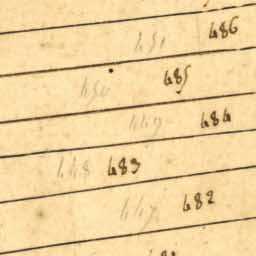 451 486
450 485
449 484
448 483
447 482